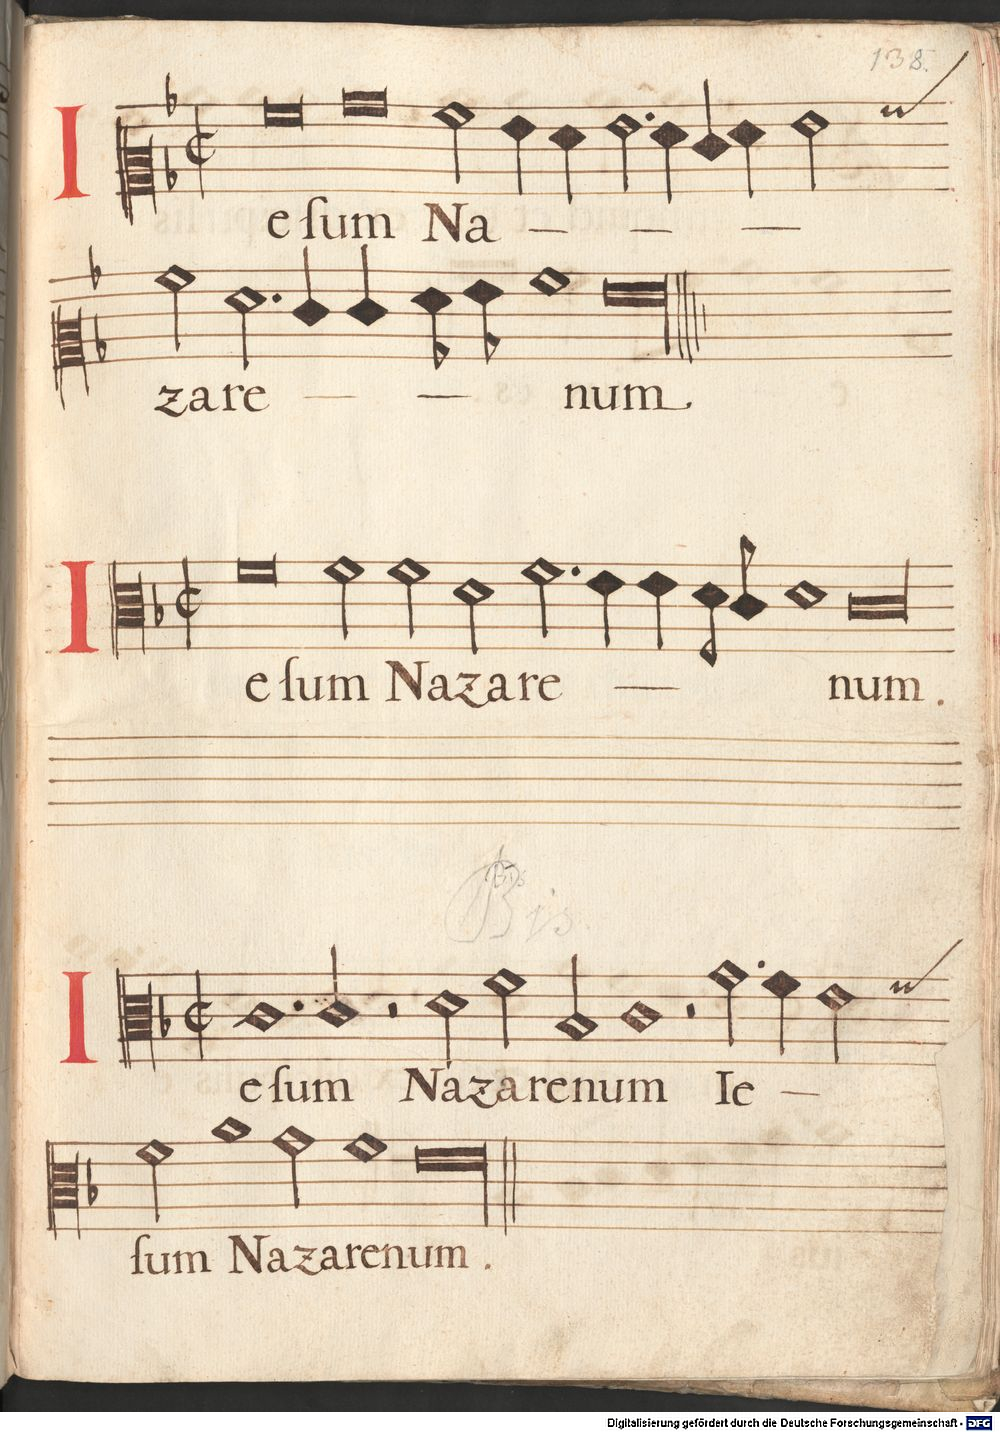 138.
Ieſum Na — — —
zare — — num
Ieſum Nazare — num.
Bis
Bis
Ieſum Nazarenum Ie —
ſum Nazarenum.
Digitalisierung gefördert durch die Deutsche Forschungsgemeinschaft - DFG